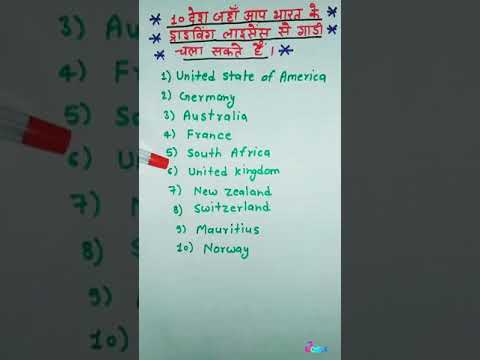 10 देश जहाँ आप भारत के
ड्राइविंग लाइसेंस से गाडी
चला सकते हैं।
1) United State of America
2) Germany
3) Australia
4) France
5) South Africa
6) United kingdom
7) New zealand
8) Switzerland
9) Mauritius
10) Norway